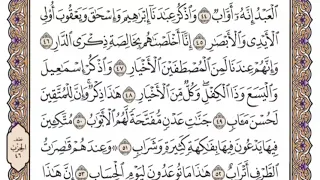 الْعَبْدُ إِنَّهُ أَوَّابٌ ٤٤ وَاذْكُرْ عِبَادَنَا إِبْرَاهِيمَ وَإِسْحَاقَ وَيَعْقُوبَ أُولِي
الْأَيْدِي وَالْأَبْصَارِ ٤٥ إِنَّا أَخْلَصْنَاهُم بِخَالِصَةٍ ذِكْرَى الدَّارِ ٤٦
وَإِنَّهُمْ عِندَنَا لَمِنَ الْمُصْطَفَيْنَ الْأَخْيَارِ ٤٧ وَاذْكُرْ إِسْمَاعِيلَ
وَالْيَسَعَ وَذَا الْكِفْلِ وَكُلٌّ مِّنَ الْأَخْيَارِ ٤٨ هَذَا ذِكْرٌ وَإِنَّ لِلْمُتَّقِينَ
لَحُسْنَ مَآبٍ ٤٩ جَنَّاتِ عَدْنٍ مُّفَتَّحَةً لَّهُمُ الْأَبْوَابُ ٥٠ مُتَّكِئِينَ
فِيهَا يَدْعُونَ فِيهَا بِفَاكِهَةٍ كَثِيرَةٍ وَشَرَابٍ ٥١ وَعِندَهُمْ قَاصِرَاتُ
الطَّرْفِ أَتْرَابٌ ٥٢ هَذَا مَا تُوعَدُونَ لِيَوْمِ الْحِسَابِ ٥٣ إِنَّ هَذَا